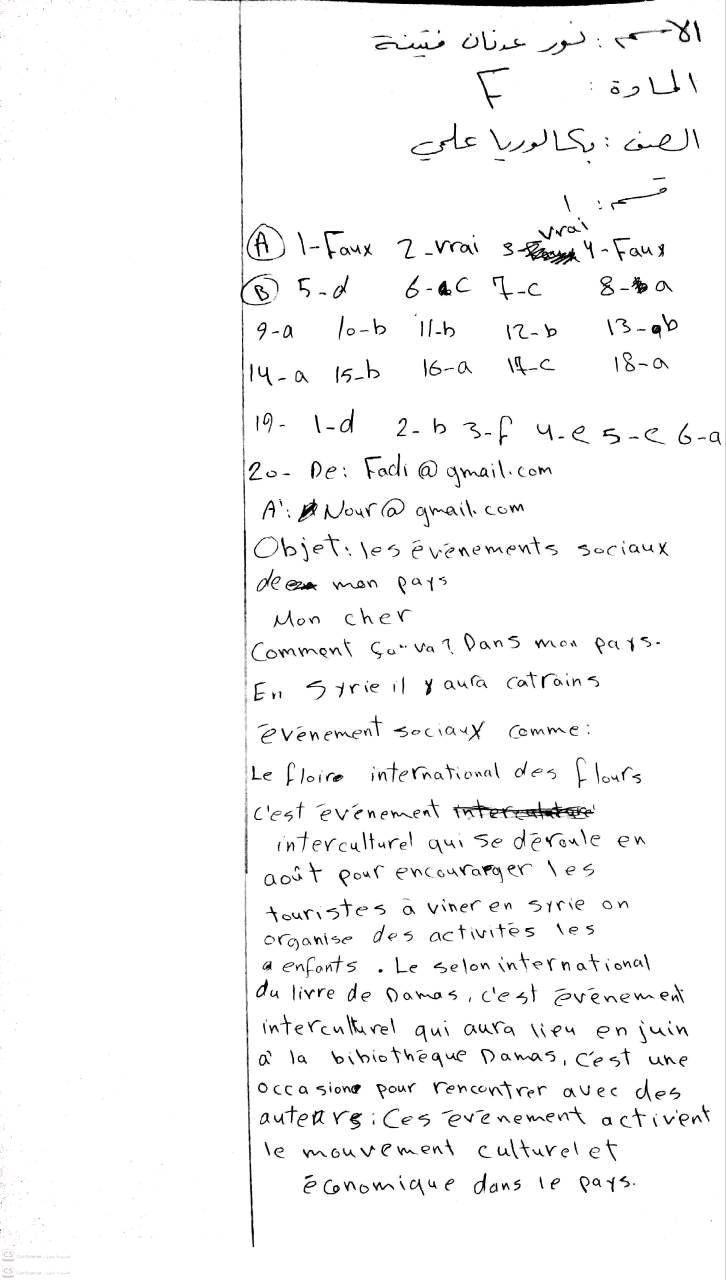 الاسم: نور عدنان فتينة
المادة: F
الصف: بكالوريا علمي
قسم: 1
A 1-Faux 2-vrai 3- vrai 4-Faux
B 5-d 6-c 7-c 8-a
9-a 10-b 11-b 12-b 13-b
14-a 15-b 16-a 17-c 18-a
19- 1-d 2-b 3-f 4-e 5-c 6-a
20- De: Fadi@gmail.com
A': Nour@gmail.com
Objet: les événements sociaux
de mon pays
Mon cher
Comment ça-va? Dans mon pays.
En Syrie il y aura catrains
événement sociaux comme:
Le floire international des flours
c'est événement
interculturel qui se déroule en
août pour encourarger les
touristes à viner en syrie on
organise des activités les
enfants. Le selon international
du livre de Damas, c'est événement
interculturel qui aura lieu en juin
à la bibiothèque Damas, c'est une
occasione pour rencontrer avec des
auteurs: Ces événement activent
le mouvement culturel et
économique dans le pays.
CS
CS